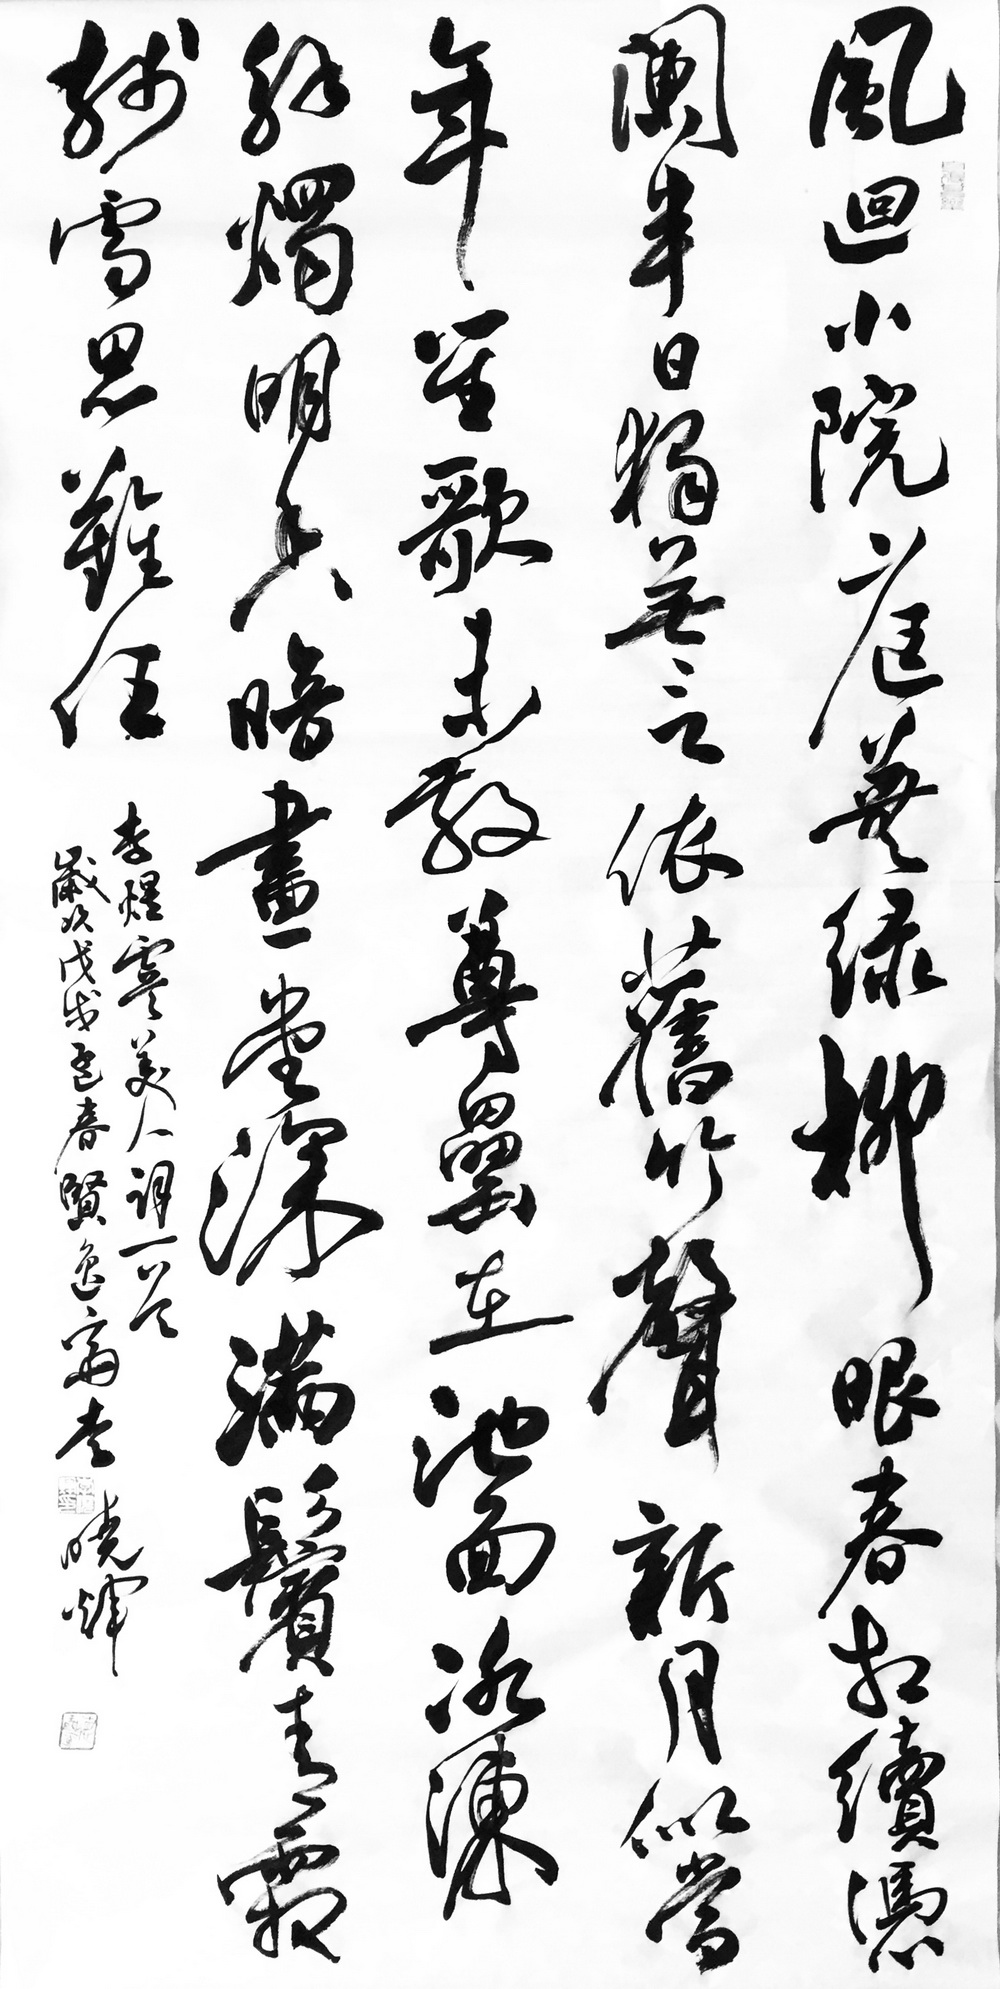 風迴小院庭蕪綠柳眼春相續憑
闌半日獨無言依舊竹聲新月似當
年笙歌未散尊罍在池面冰凍
解燭明香暗畫堂深滿鬢青霜
殘雪思難任
李煜虞美人詞一首
歲次戊戌春賢逸齋李曉煇